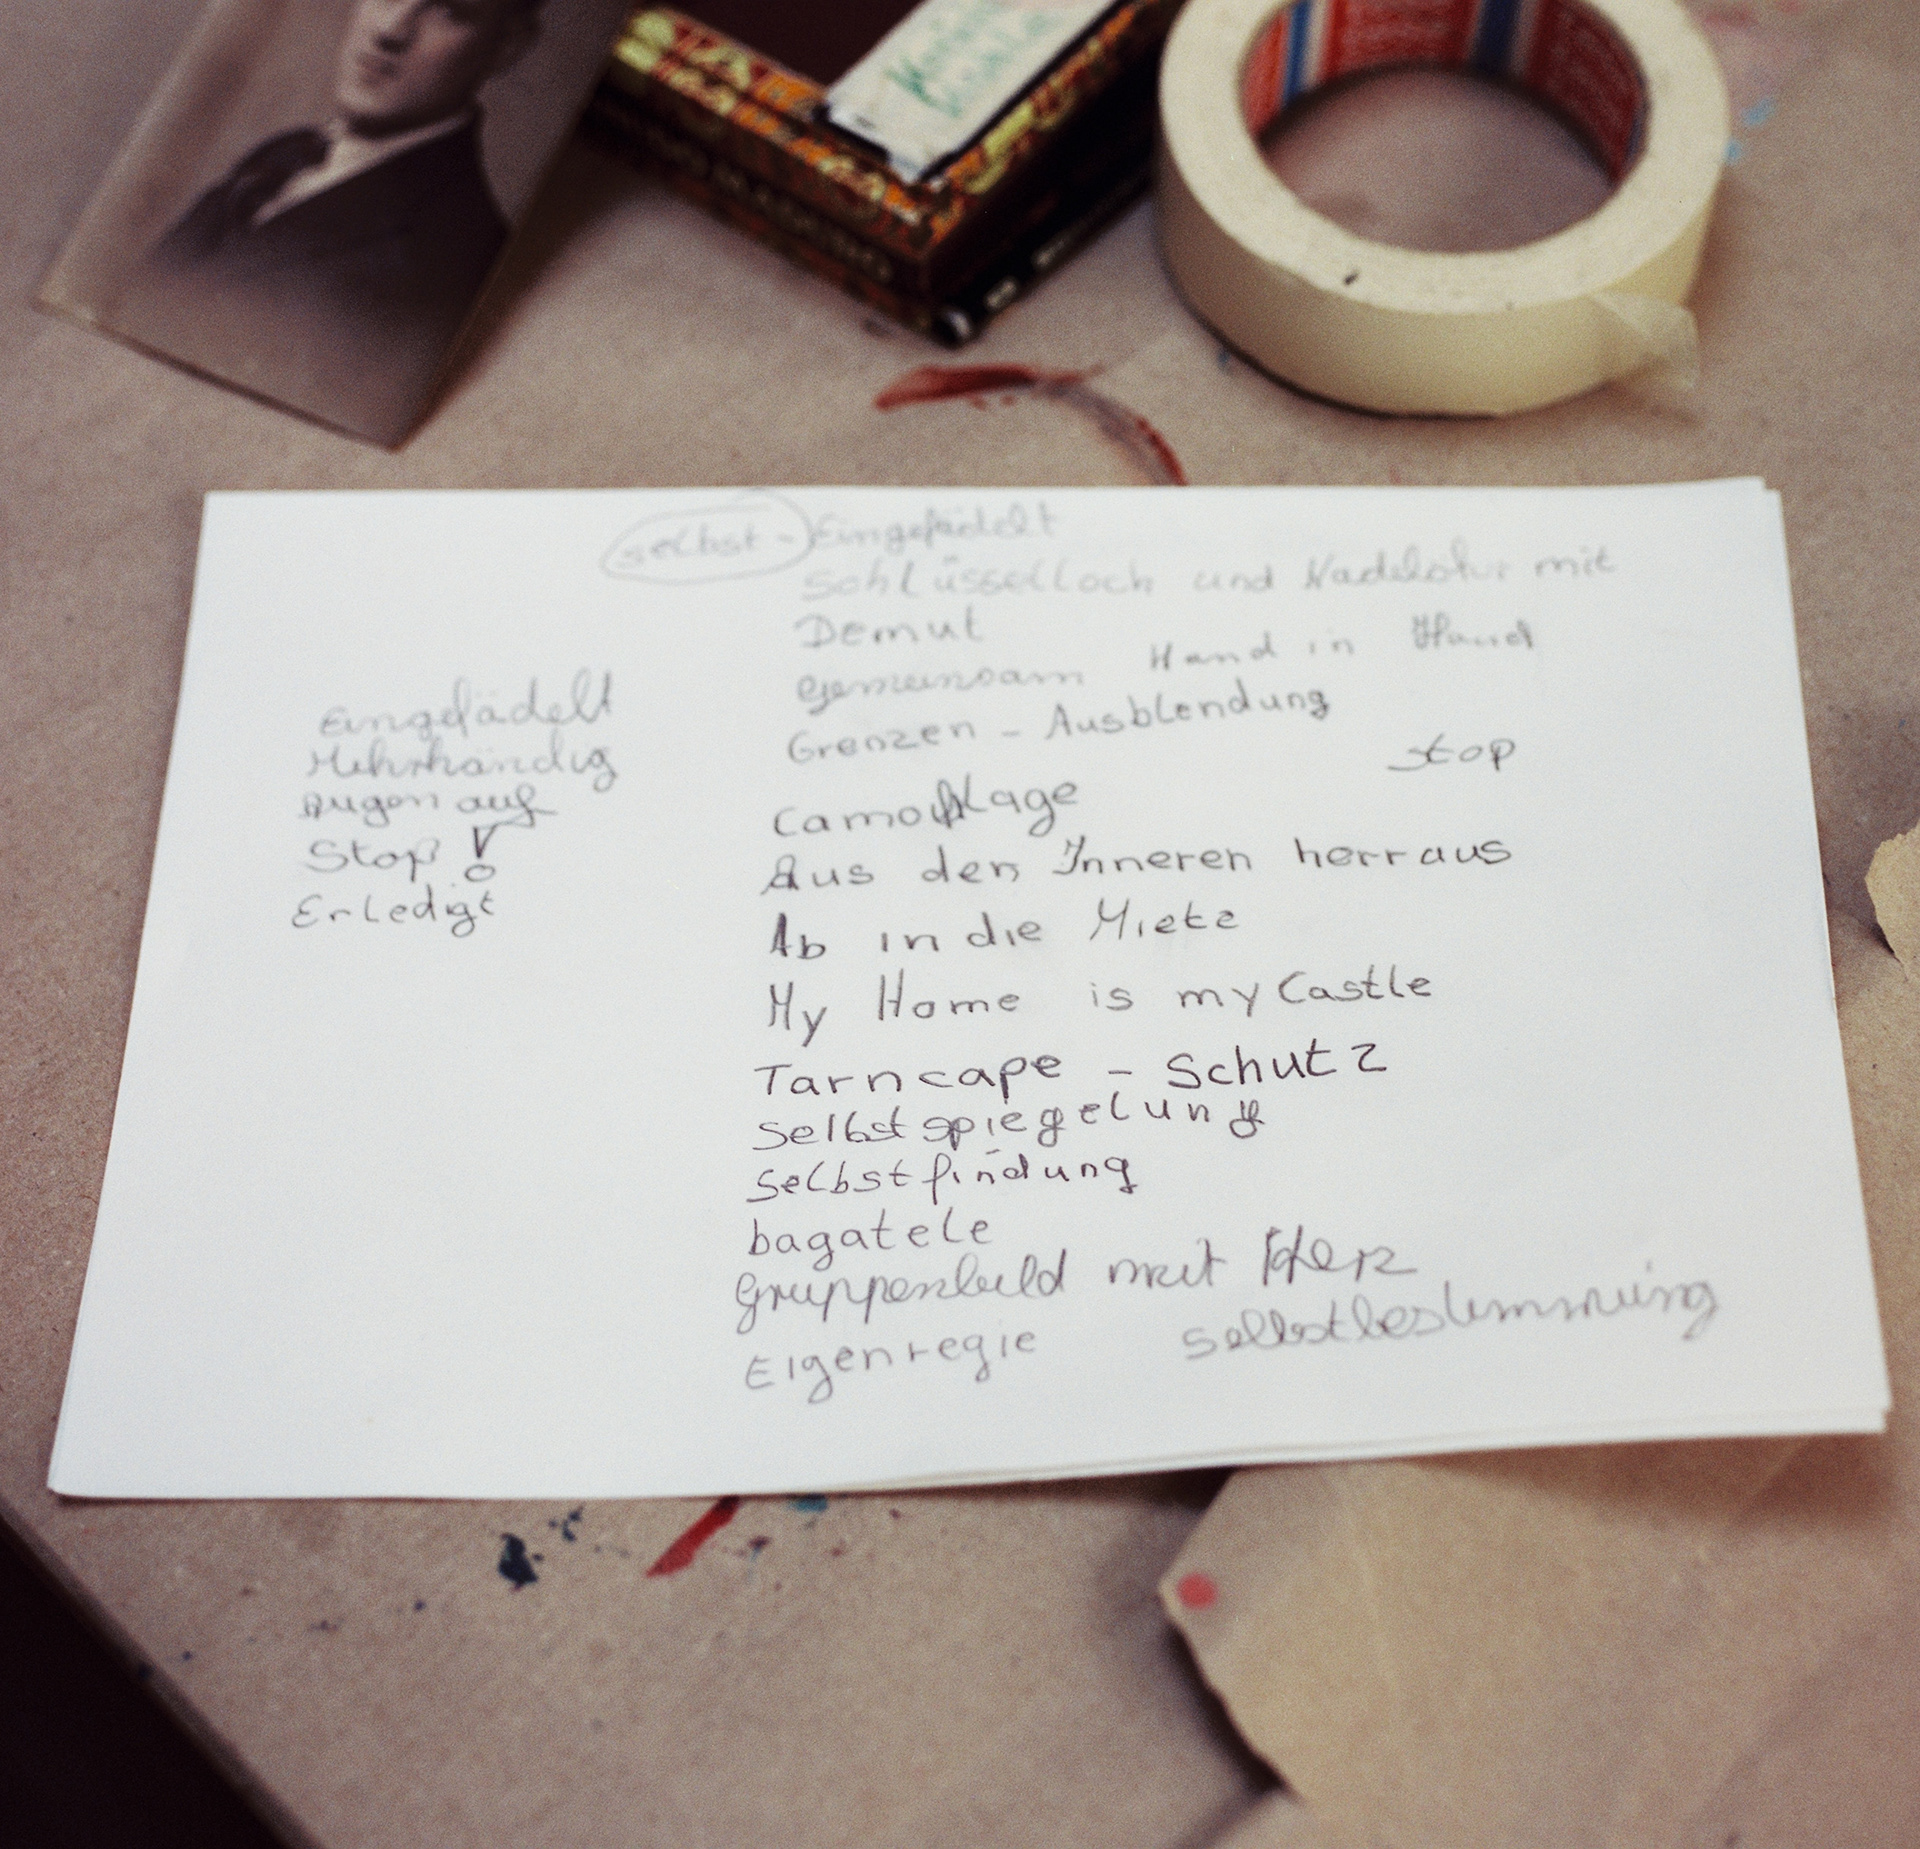 selbst - Eingefädelt
Schlüsselloch und mit
Demut
gemeinsam Hand in Hand
Grenzen - Ausblendung
Stop
Camouflage
Aus den Inneren herraus
Ab in die Miete
My Home is my Castle
Tarncape - Schutz
Selbstspiegelung
Selbstfindung
bagatele
Gruppenbild mit Herz
Eigenregie Selbstbestimmung
Eingefädelt
Mehrhändig
Augen auf
Stop!
Erledigt